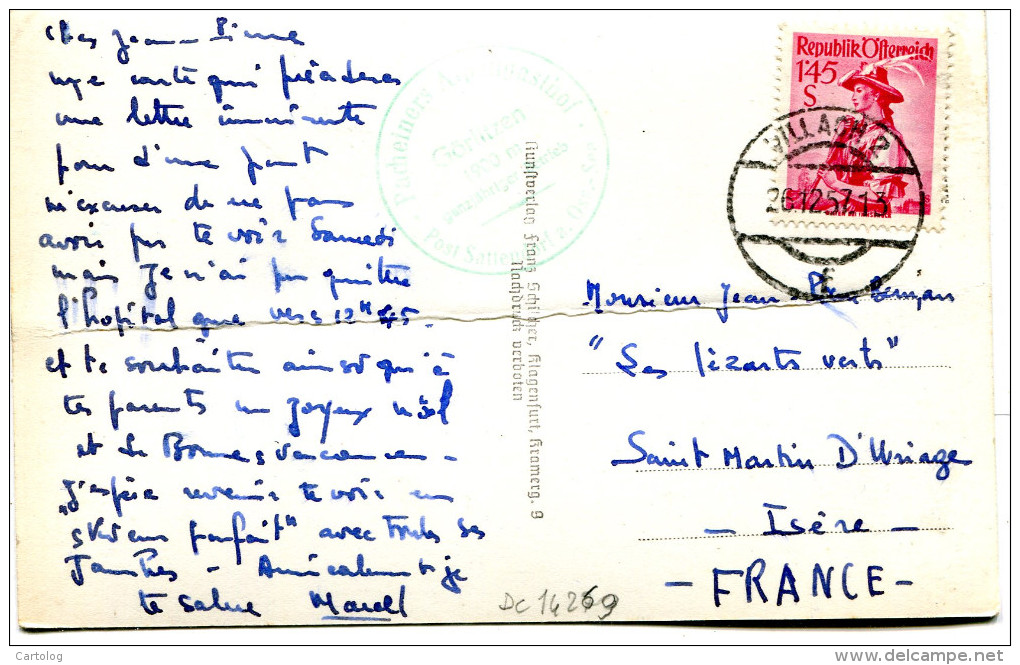 cher Jean-Pierre
une carte qui précédera
une lettre imminente
pour d'une part
m'excuser de ne pas
avoir pu te voir Samedi
mais je n'ai pu quitter
l'hôpital que vers 12H 45.
et te souhaiter ainsi qu'à
tes parents un joyeux noël
et de Bonnes vacances -
J'espère revenir te voir en
"skieur parfait" avec toutes ses
Jambes - Amicalement je
te salue Marcel
Pacheiners Alpengasthof
Görlitzen
1900 m
Post Sattendorf a. O.
Kunstverlag Franz Schilcher, Klagenfurt, Kramerg. 9
Nachdruck verboten
Republik Österreich
145
S
VILLACH 2
20.12.57.13
Monsieur Jean-Pierre
"Les lézarts verts"
Saint Martin D'Uriage
- Isère -
- FRANCE -
Dc 14269
Cartolog
delcampe.net